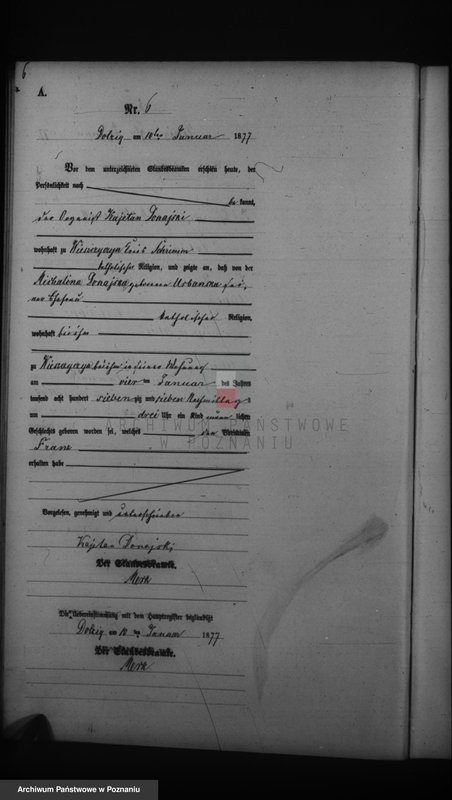 6
A.
Nr. 6
Dolzig am 10ten Januar 1877
Vor dem unterzeichneten Standesbeamten erschien heute, der
Persönlichkeit nach
be kannt,
der Organist Kajetan Donajski
wohnhaft zu Kreis Schrimm
katholischer Religion, und zeigte an, daß von der
Michalina Donajska geborenen Urbanska sei-
ner Ehefrau
katholischer Religion,
wohnhaft bei ihm
zu bei ihm in seiner Wohnung
am vier ten Januar des Jahres
tausend acht hundert sieben zig und sieben Nachmittags
um drei Uhr ein Kind männ lichen
Geschlechts geboren worden sei, welches den Vornamen
Franz
erhalten habe
Vorgelesen, genehmigt und unterschrieben
Kajetan Donajski
Der Standesbeamte.
Merk
Die Uebereinstimmung mit dem Hauptregister beglaubigt
Dolzig am 10 ten Januar 1877
Der Standesbeamte.
Merk
ARCHIWUM PAŃSTWOWE
W POZNANIU
Archiwum Państwowe w Poznaniu